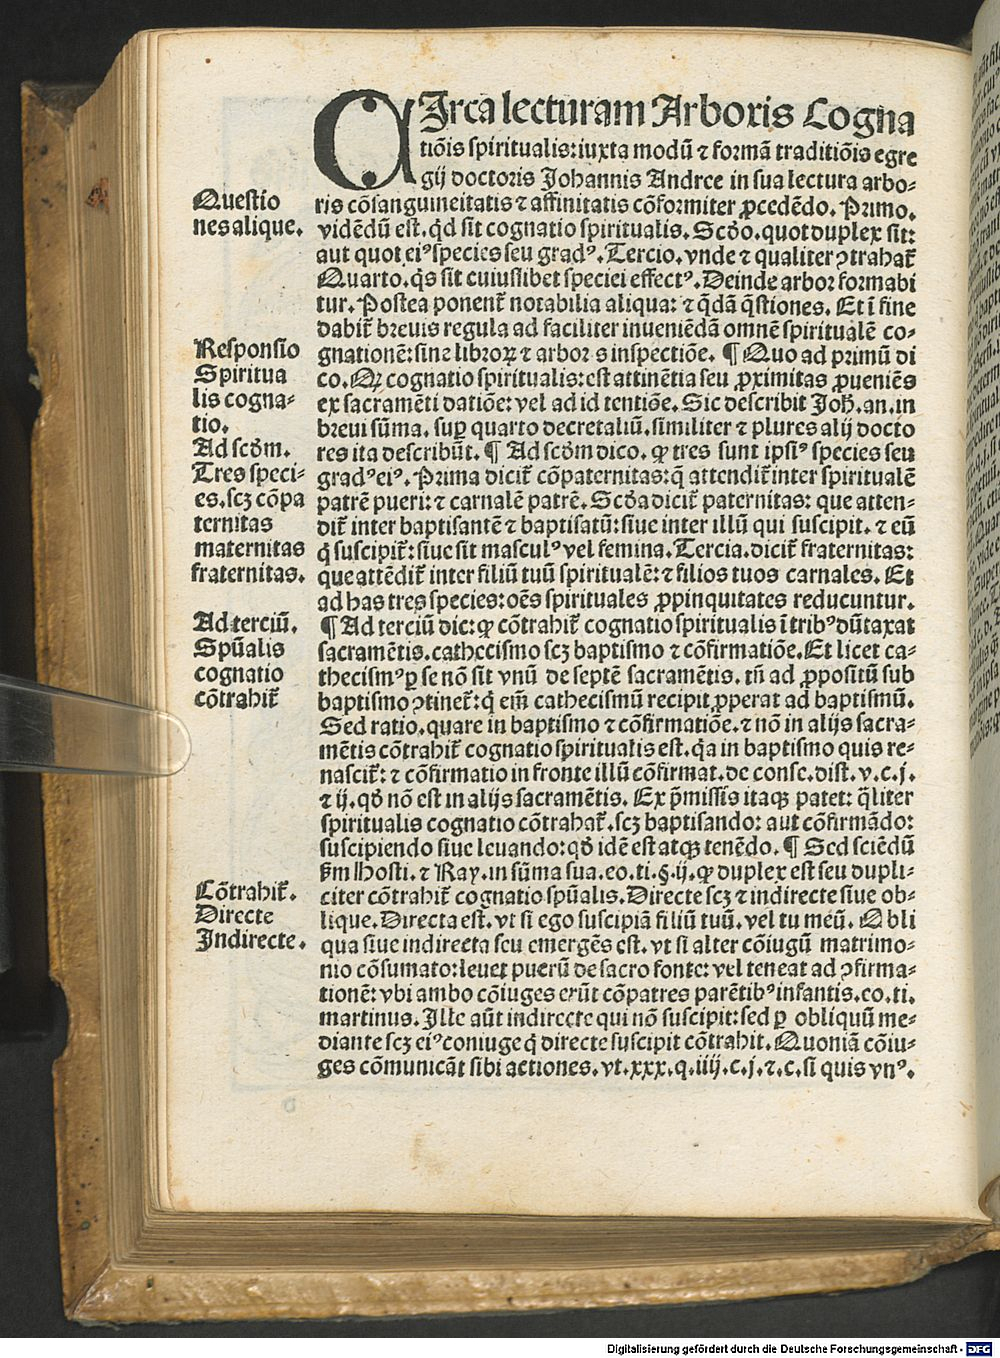 CIrca lecturam Arboris Cogna
tiōis spiritualis: iuxta modū ⁊ formā traditiōis egre
gij doctoris Johannis Andree in sua lectura arbo-
ris cōsanguineitatis ⁊ affinitatis cōformiter ꝓcedēdo. Primo.
vidēdū est. qd̄ sit cognatio spiritualis. Scd̓o. quotduplex sit:
aut quot eiꝰ species seu gradꝰ. Tercio. vnde ⁊ qualiter ꝯtrahat̄
Quarto. q̄s sit cuiuslibet speciei effectꝰ. Deinde arbor formabi
tur. Postea ponent̄ notabilia aliqua: ⁊ q̄dā q̄stiones. Et ī fine
dabit̄ breuis regula ad faciliter inueniēdā omnē spiritualē co-
gnationē: sine libroꝝ ⁊ arbor s inspectiōe. ¶ Quo ad primū di
co. Qꝛ cognatio spiritualis: est attinētia seu ꝓximitas ꝓueniēs
ex sacramēti datiōe: vel ad id tentiōe. Sic describit Joh̄. an. in
breui sūma. suꝑ quarto decretaliū. similiter ⁊ plures alij docto
res ita describūt. ¶ Ad scd̓m dico. ꝙ tres sunt ipsiꝰ species seu
gradꝰ eiꝰ. Prima dicit̄ cōpaternitas: q̄ attendit̄ inter spiritualē
patrē pueri: ⁊ carnalē patrē. Scd̓a dicit̄ paternitas: que atten-
dit̄ inter baptisantē ⁊ baptisatū: siue inter illū qui suscipit. ⁊ eū
q̇ suscipit̄: siue sit masculꝰ vel femina. Tercia. dicit̄ fraternitas:
que attēdit̄ inter filiū tuū spiritualē: ⁊ filios tuos carnales. Et
ad has tres species: oēs spirituales ꝓpinquitates reducuntur.
¶ Ad terciū dic: ꝙ cōtrahit̄ cognatio spiritualis ī tribꝰ dūtaxat
sacramētis. cathecismo scꝫ baptismo ⁊ cōfirmatiōe. Et licet ca-
thecismꝰ ꝑ se nō sit vnū de septē sacramētis. tn̄ ad ꝓpositū sub
baptismo ꝯtinet̄: q̇ em̄ cathecismū recipit ꝓperat ad baptismū.
Sed ratio. quare in baptismo ⁊ cōfirmatiōe. ⁊ nō in alijs sacra-
mētis cōtrahit̄ cognatio spiritualis est. q̇a in baptismo quis re-
nascit̄: ⁊ cōfirmatio in fronte illū cōfirmat. de conse. dist. v. c. j.
⁊ ij. qd̓ nō est in alijs sacramētis. Ex p̄missis itaqꝫ patet: q̄liter
spiritualis cognatio cōtrahat̄. scꝫ baptisando: aut cōfirmādo:
suscipiendo siue leuando: qd̓ idē est atqꝫ tenēdo. ¶ Sed sciēdū
ẜm Hosti. ⁊ Ray. in sūma sua. eo. ti. §. ij. ꝙ duplex est seu dupli-
citer cōtrahit̄ cognatio spūalis. Directe scꝫ ⁊ indirecte siue ob-
lique. Directa est. vt si ego suscipiā filiū tuū. vel tu meū. Obli
qua siue indirecta seu emergēs est. vt si alter cōiugū matrimo-
nio cōsumato: leuet puerū de sacro fonte: vel teneat ad ꝯfirma-
tionē: vbi ambo cōiuges erūt cōpatres parētibꝰ infantis. eo. ti.
martinus. Ille aūt indirecte qui nō suscipit: sed ꝑ obliquū me-
diante scꝫ eiꝰ coniuge q̇ directe suscipit cōtrahit. Quoniā cōiu-
ges cōmunicāt sibi actiones. vt. xxx. q. iiij. c. j. ⁊. c. si quis vnꝰ.
Questio
nes alique.
Responsio
Spiritua
lis cogna-
tio.
Ad scd̓m.
Tres speci-
es. scꝫ cōpa
ternitas
maternitas
fraternitas.
Ad terciū.
Spūalis
cognatio
cōtrahit̄
Cōtrahit̄.
Directe
Indirecte.
Digitalisierung gefördert durch die Deutsche Forschungsgemeinschaft - DFG